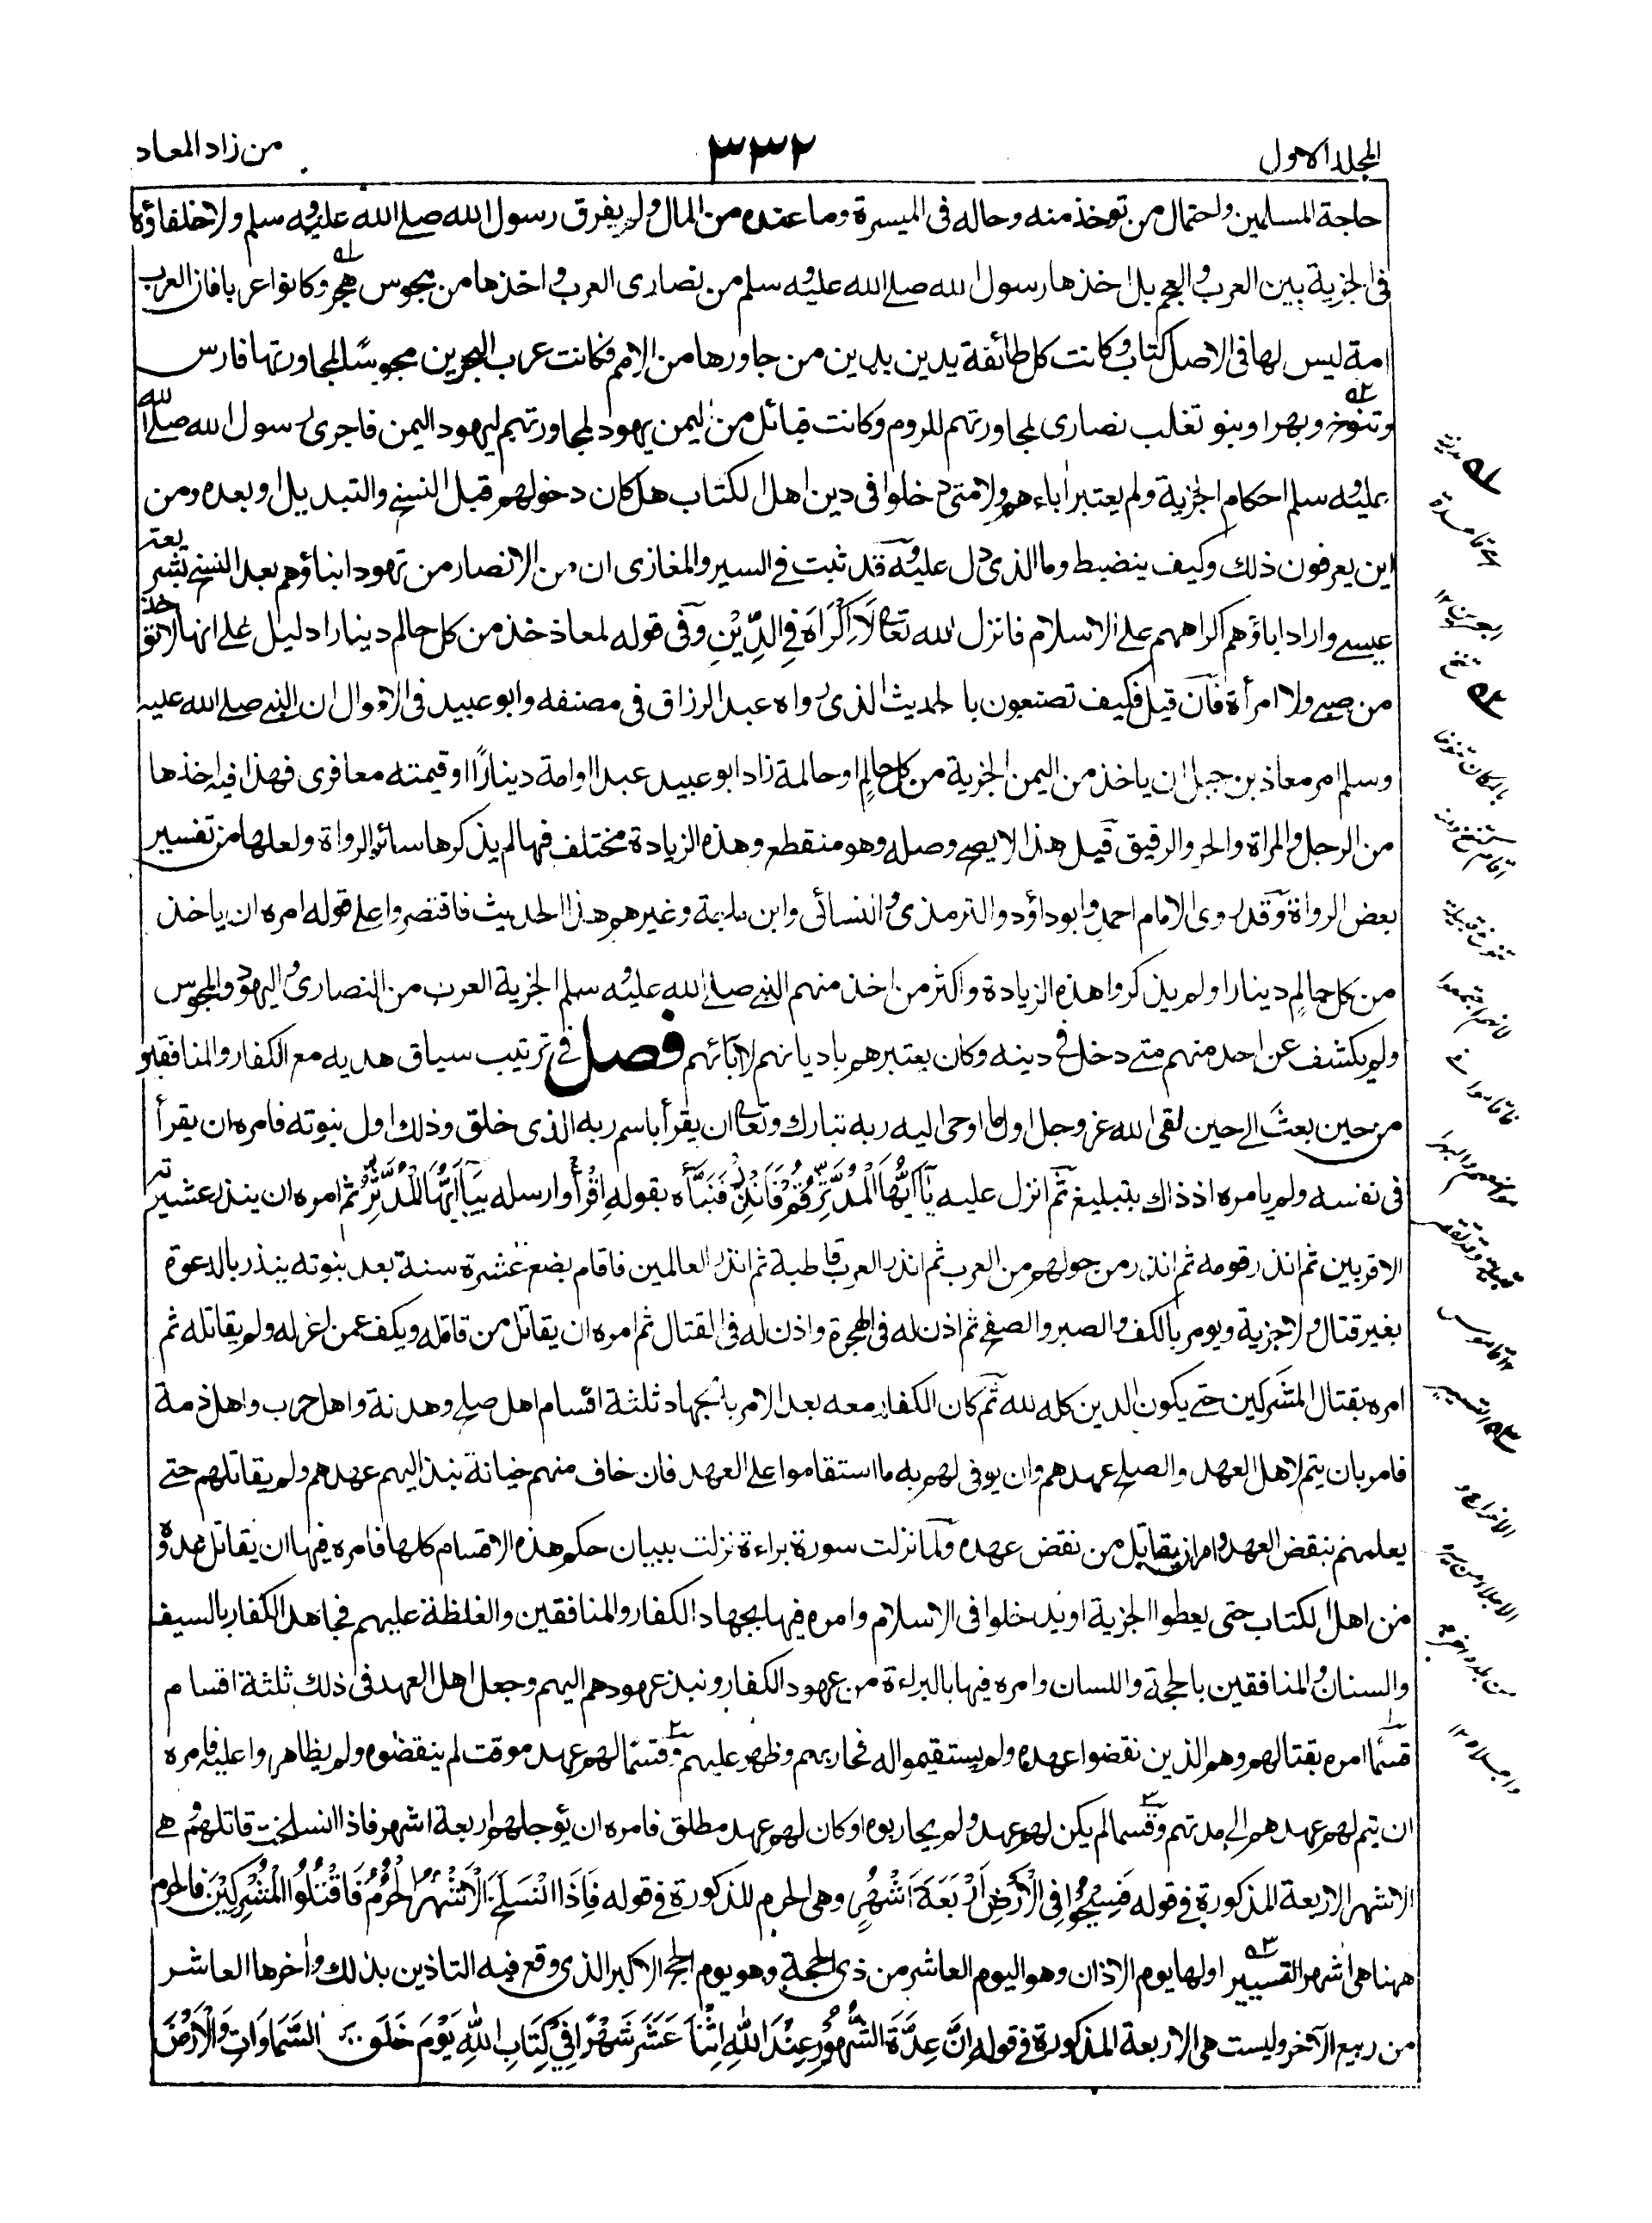 المجلد الاول
٣٣٢
من زاد المعاد
حاجة المسلمين واحتمال من توخذ منه وحاله فى الميسرة وما عنده من المال ولم يفرق رسول الله صلى الله عليه وسلم ولا خلفاؤه
فى الجزية بين العرب والعجم بل اخذها رسول الله صلى الله عليه وسلم من نصارى العرب واخذها من مجوس هجر وكانوا عربا فان العرب
امة ليس لها فى الاصل كتاب وكانت كل طائفة يدين بدين من جاورها من الامم فكانت عرب البحرين مجوسًا لمجاورتها فارس
وتنوخ وبهرا وبنو تغلب نصارى لمجاورتهم للروم وكانت قبائل من اليمن يهود لمجاورتهم ليهود اليمن فاجرى رسول الله صلى الله
عليه وسلم احكام الجزية ولم يعتبر اباءهم ولا متى دخلوا فى دين اهل الكتاب هل كان دخولهم قبل النسخ والتبديل او بعده ومن
اين يعرفون ذلك وكيف ينضبط وما الذى دل عليه وقد ثبت فى السير والمغازى ان من الانصار من تهود ابناؤهم بعد النسخ بشريعة
عيسى واراد اباؤهم اكراههم على الاسلام فانزل الله تعالى لَا إِكْرَاهَ فِي الدِّيْنِ وفى قوله لمعاذ خذ من كل حالم دينارا دليل على انها لا توخذ
من صبى ولا امرأة فان قيل فكيف تصنعون بالحديث الذى رواه عبد الرزاق فى مصنفه وابو عبيد فى الاموال ان النبى صلى الله عليه
وسلم امر معاذ بن جبل ان ياخذ من اليمن الجزية من كل حالمٍ او حالمة زاد ابو عبيد عبدا او امة دينارًا او قيمته معافرى فهذا فيه اخذها
من الرجل والمراة والحر والرقيق قيل هذا لا يصح وصله وهو منقطع وهذه الزيادة مختلف فيها لم يذكرها سائر الرواة ولعلها من تفسير
بعض الرواة وقد روى الامام احمد وابو داؤد والترمذى والنسائى وابن ماجة وغيرهم هذا الحديث فاقتصروا على قوله امره ان ياخذ
من كل حالمٍ دينارا ولم يذكروا هذه الزيادة واكثر من اخذ منهم النبى صلى الله عليه وسلم الجزية العرب من النصارى واليهود والمجوس
ولم يكشف عن احد منهم متى دخل فى دينه وكان يعتبرهم باديانهم لا بآبائهم فصل فى ترتيب سياق هديه مع الكفار والمنافقين
من حين بعث الى حين لقى الله عز وجل اول ما اوحى اليه ربه تبارك وتعالى ان يقرأ باسم ربه الذى خلق وذلك اول نبوته فامره ان يقرأ
فى نفسه ولم يامره اذ ذاك بتبليغ ثم انزل عليه يَآ اَيُّهَا الْمُدَّثِّرُ قُمْ فَاَنْذِرْ فنبأه بقوله اِقْرَأْ وارسله بيَآ اَيُّهَا الْمُدَّثِّرُ ثم امره ان ينذر عشيرته
الاقربين ثم انذر قومه ثم انذر من حولهم من العرب ثم انذر العرب قاطبة ثم انذر العالمين فاقام بضع عشرة سنة بعد نبوته ينذر بالدعوة
بغير قتال ولا جزية ويومر بالكف والصبر والصفح ثم اذن له فى الهجرة واذن له فى القتال ثم امره ان يقاتل من قاتله ويكف عمن اعتزله ولم يقاتله ثم
امره بقتال المشركين حتى يكون الدين كله لله ثم كان الكفار معه بعد الامر بالجهاد ثلثة اقسام اهل صلح وهدنة واهل حرب واهل ذمة
فامر بان يتم لاهل العهد والصلح عهدهم وان يوفى لهم به ما استقاموا على العهد فان خاف منهم خيانة نبذ اليهم عهدهم ولم يقاتلهم حتى
يعلمهم بنقض العهد وامر ان يقاتل من نقض عهده ولما نزلت سورة براءة نزلت ببيان حكم هذه الاقسام كلها فامره فيها ان يقاتل عدوه
من اهل الكتاب حتى يعطوا الجزية او يدخلوا فى الاسلام وامره فيها بجهاد الكفار والمنافقين والغلظة عليهم فجاهد الكفار بالسيف
والسنان والمنافقين بالحجة واللسان وامره فيها بالبراءة من عهود الكفار ونبذ عهودهم اليهم وجعل اهل العهد فى ذلك ثلثة اقسام
قسمًا امره بقتالهم وهم الذين نقضوا عهده ولم يستقيموا له فحاربهم وظهر عليهم وقسمًا لهم عهد موقت لم ينقضوه ولم يظاهروا عليه فامره
ان يتم لهم عهدهم الى مدتهم وقسما لم يكن لهم عهد ولم يحاربوه او كان لهم عهد مطلق فامره ان يؤجلهم اربعة اشهر فاذا انسلخت قاتلهم وهى
الاشهر الاربعة المذكورة فى قوله فَسِيْحُوْا فِى الْاَرْضِ اَرْبَعَةَ اَشْهُرٍ وهى الحرم المذكورة فى قوله فَاِذَا انْسَلَخَ الْاَشْهُرُ الْحُرُمُ فَاقْتُلُوا الْمُشْرِكِيْنَ فالحرم
ههنا هى اشهر التسيير اولها يوم الاذان وهو اليوم العاشر من ذى الحجة وهو يوم الحج الاكبر الذى وقع فيه التاذين بذلك واخرها العاشر
من ربيع الآخر وليست هى الاربعة المذكورة فى قوله اِنَّ عِدَّةَ الشُّهُوْرِ عِنْدَ اللّٰهِ اثْنَا عَشَرَ شَهْرًا فِيْ كِتَابِ اللّٰهِ يَوْمَ خَلَقَ السَّمَاوَاتِ وَالْاَرْضَ